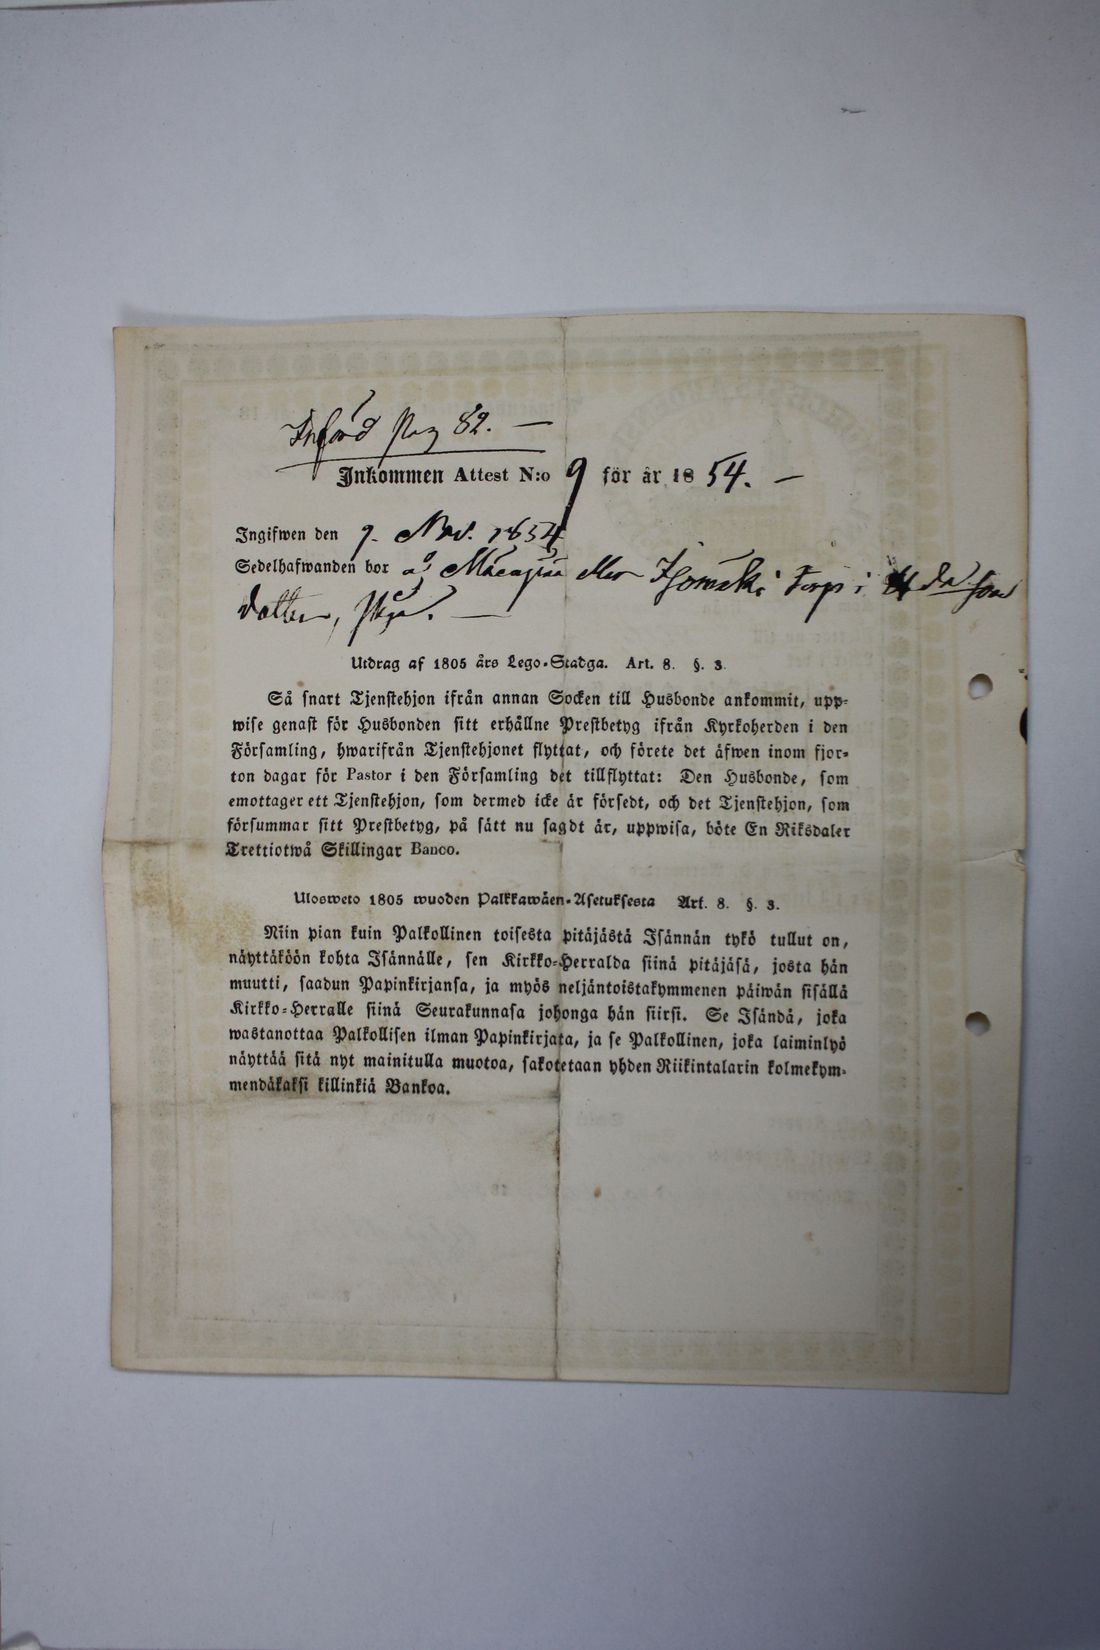 Införd pag 82. —
Inkommen Attest N:o 9 för år 1854. —
Ingifwen den 9. Nov. 1854
Sedelhafwanden bor å Torp i
dotter,
Utdrag af 1805 års Lego-Stadga. Art. 8. §. 3.
Så snart Tjenstehjon ifrån annan Socken till Husbonde ankommit, upp-
wise genast för Husbonden sitt erhållne Prestbetyg ifrån Kyrkoherden i den
Församling, hwarifrån Tjenstehjonet flyttat, och förete det äfwen inom fjor-
ton dagar för Pastor i den Församling det tillflyttat: Den Husbonde, som
emottager ett Tjenstehjon, som dermed icke är försedt, och det Tjenstehjon, som
försummar sitt Prestbetyg, på sätt nu sagdt är, uppwisa, böte En Riksdaler
Trettiotwå Skillingar Banco.
Ulosweto 1805 wuoden Palkkawäen-Asetuksesta Art. 8. §. 3.
Niin pian kuin Palkollinen toisesta pitäjästä Isännän tykö tullut on,
näyttäköön kohta Isännälle, sen Kirkko-Herralda siinä pitäjäsä, josta hän
muutti, saadun Papinkirjansa, ja myös neljäntoistakymmenen päiwän sisällä
Kirkko-Herralle siinä Seurakunnasa johonga hän siirsi. Se Isändä, joka
wastanottaa Palkollisen ilman Papinkirjata, ja se Palkollinen, joka laiminlyö
näyttää sitä nyt mainitulla muotoa, sakotetaan yhden Riikintalarin kolmekym-
mendäkaksi killinkiä Bankoa.